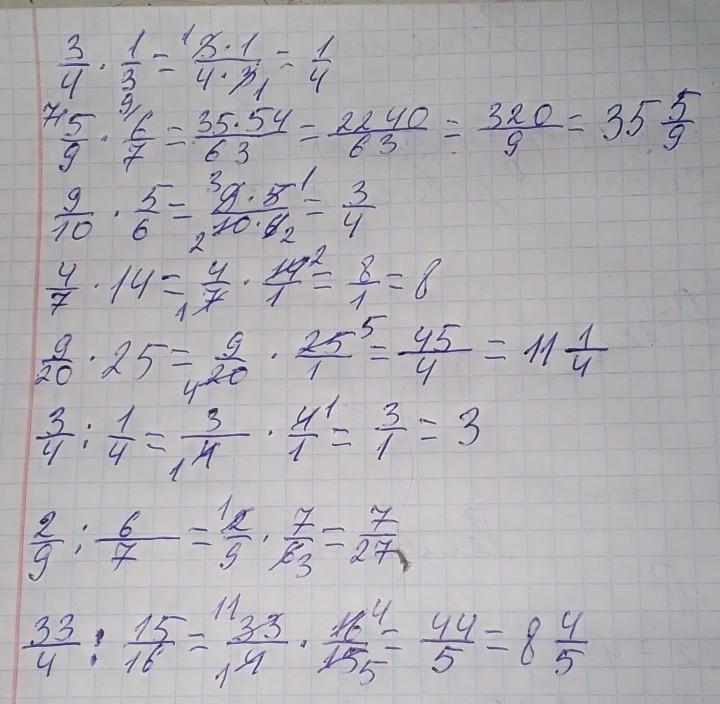 3/4 · 1/3 = ¹3·1/4·3₁ = 1/4
⁷⁾5/9 · ⁹⁾6/7 = 35·54/63 = 2240/63 = 320/9 = 35 5/9
9/10 · 5/6 = ³9·5¹/₂10·6₂ = 3/4
4/7 · 14 = 4/₁7 · 14²/1 = 8/1 = 8
9/20 · 25 = 9/₄20 · 25⁵/1 = 45/4 = 11 1/4
3/4 : 1/4 = 3/₁4 · 4¹/1 = 3/1 = 3
2/9 : 6/7 = ¹2/9 · 7/6₃ = 7/27
33/4 : 15/16 = ¹¹33/₁4 · 16⁴/15₅ = 44/5 = 8 4/5